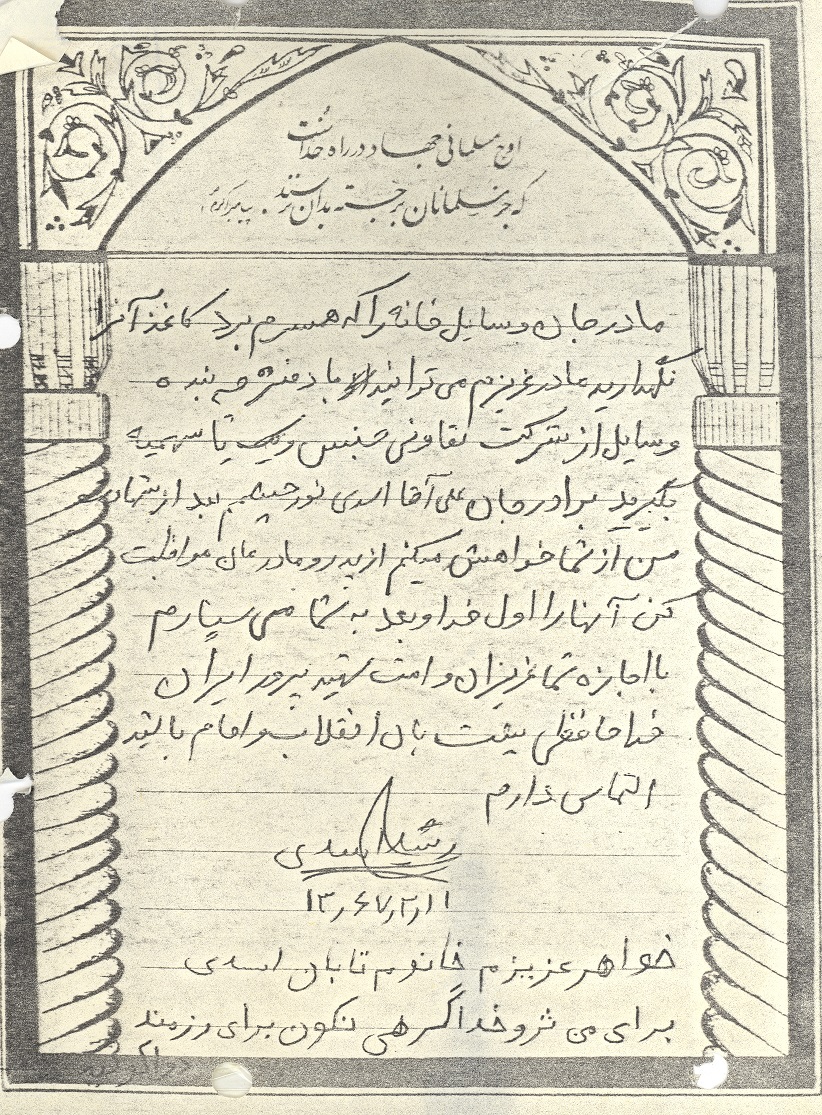 اوج مسلمانی جهاد در راه خداست
که جز مسلمانان برجسته بدان نرسند . پیامبر اکرم
مادر جان وسایل خانه را که همسرم برد کاغذ آنرا
نگهدارید مادر عزیزم می توانید با دفترچه بنده
وسایل از شرکت تعاونی جنس ویک یا سهمیه
بگیرید برادر جان علی آقا اسدی نور چشمم بعد از شهادت
من از شما خواهش میکنم از پدر و مادرمان مواظبت
کن آنها را اول خدا و بعد به شما می سپارم
با اجازه شما عزیزان و امت شهید پرور ایران
خداحافظی پشت بان انقلاب و امام باشید
التماس دارم
اسدی
۱۳٫۶۷٫۲٫۱۱
خواهر عزیزم خانوم تابان اسدی
برای من نزد خدا گرهی نکون برای رزمند